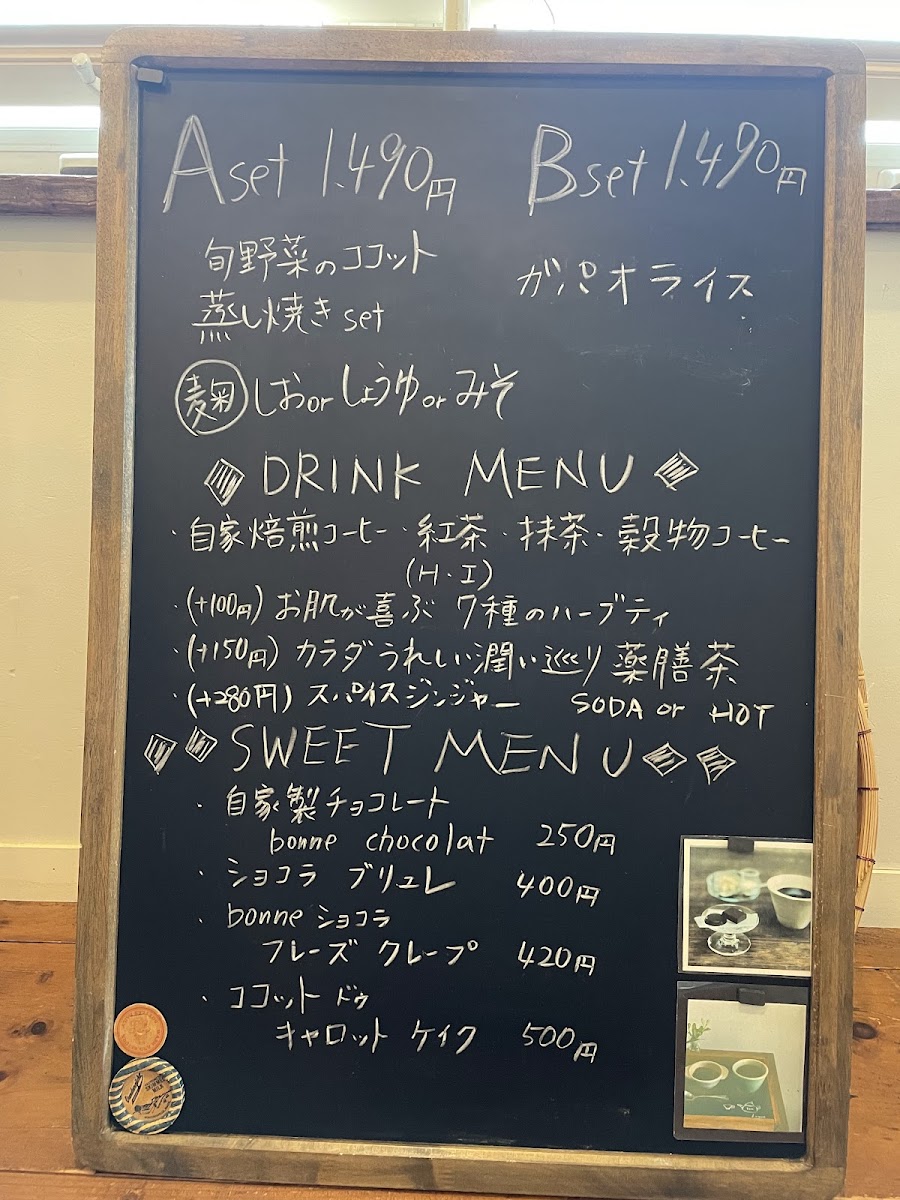 A set 1.490円
B set 1.490円
旬野菜のココット
蒸し焼き set
ガパオライス
麹 しお or しょうゆ or みそ
DRINK MENU
・自家焙煎コーヒー・紅茶・抹茶・穀物コーヒー
(H・I)
・(+100円) お肌が喜ぶ 7種のハーブティ
・(+150円) カラダうれしい潤い巡り薬膳茶
・(+280円) スパイスジンジャー SODA or HOT
SWEET MENU
・自家製チョコレート
bonne chocolat 250円
・ショコラ ブリュレ 400円
・bonne ショコラ
フレーズ クレープ 420円
・ココット ドゥ
キャロット ケイク 500円